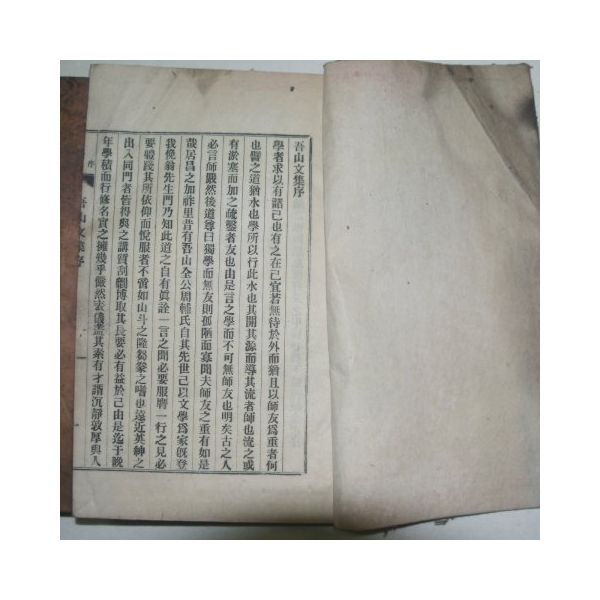 吾山文集序
學者求以有諸己也有之在己宜若無待於外而猶且以師友爲重者何
也譬之道猶水也學所以行此水也其開其源而導其流者師也流之或
有淤塞而加之疏鑿者友也由是言之學而不可無師友也明矣古之人
必言師嚴然後道尊曰獨學而無友則孤陋而寡聞夫師友之重有如是
哉居昌之加祚里昔有吾山全公周輔氏自其先世己以文學爲家旣登
我俛翁先生門乃知此道之自有眞詮一言之聞必要服膺一行之見必
要軆踐其所依仰而悅服者不啻如山斗之隆芻豢之嗜也遠近英紳之
出入同門者皆得與之講質剖劘博取其長要必有益於己由是迄于晩
年學積而行修名實之擁幾乎儼然表儀蓋其素有才諝沉靜敦厚與人
吾山文集序
序